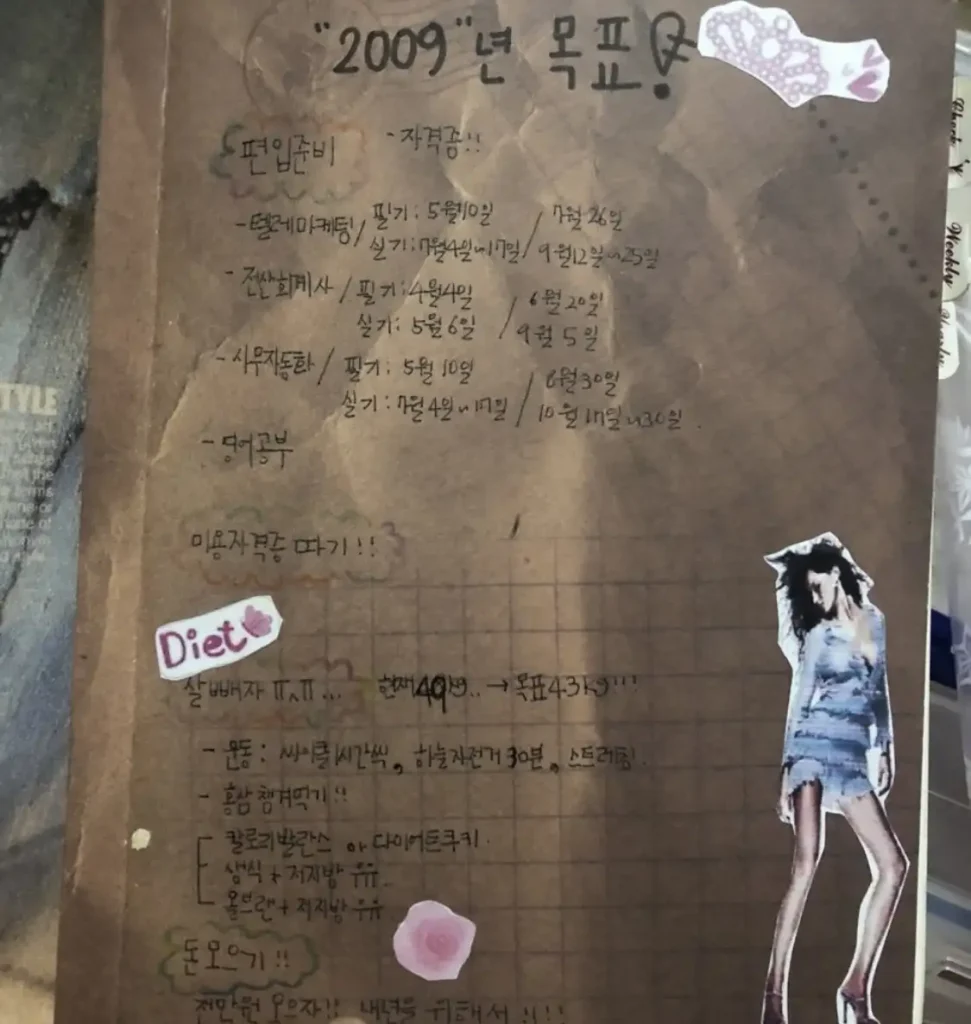 "2009"년 목표!
편입준비 - 자격증!!
- 텔레마케팅 / 필기: 5월10일 / 7월 26일
실기: 7월4일~17일 / 9월12일~25일
- 전산회계사 / 필기: 4월4일 / 6월 20일
실기: 5월 6일 / 9월 5일
- 사무자동화 / 필기: 5월 10일 / 8월30일
실기: 7월 4일~17일 / 10월 17일~30일.
- 영어공부
미용자격증 따기!!
Diet
살빼자 ㅠ^ㅠ... 현재 49kg.. → 목표43kg!!!
- 운동: 싸이클1시간씩, 하늘자전거 30분, 스트레칭.
- 홍삼 챙겨먹기!!
칼로리발란스 or 다이어트쿠키.
생식 + 저지방 우유.
올브랜 + 저지방 우유
돈 모으기!!
천만원 모으자!! 내년을 위해서 !!!!
TYLE
Check
Weekly